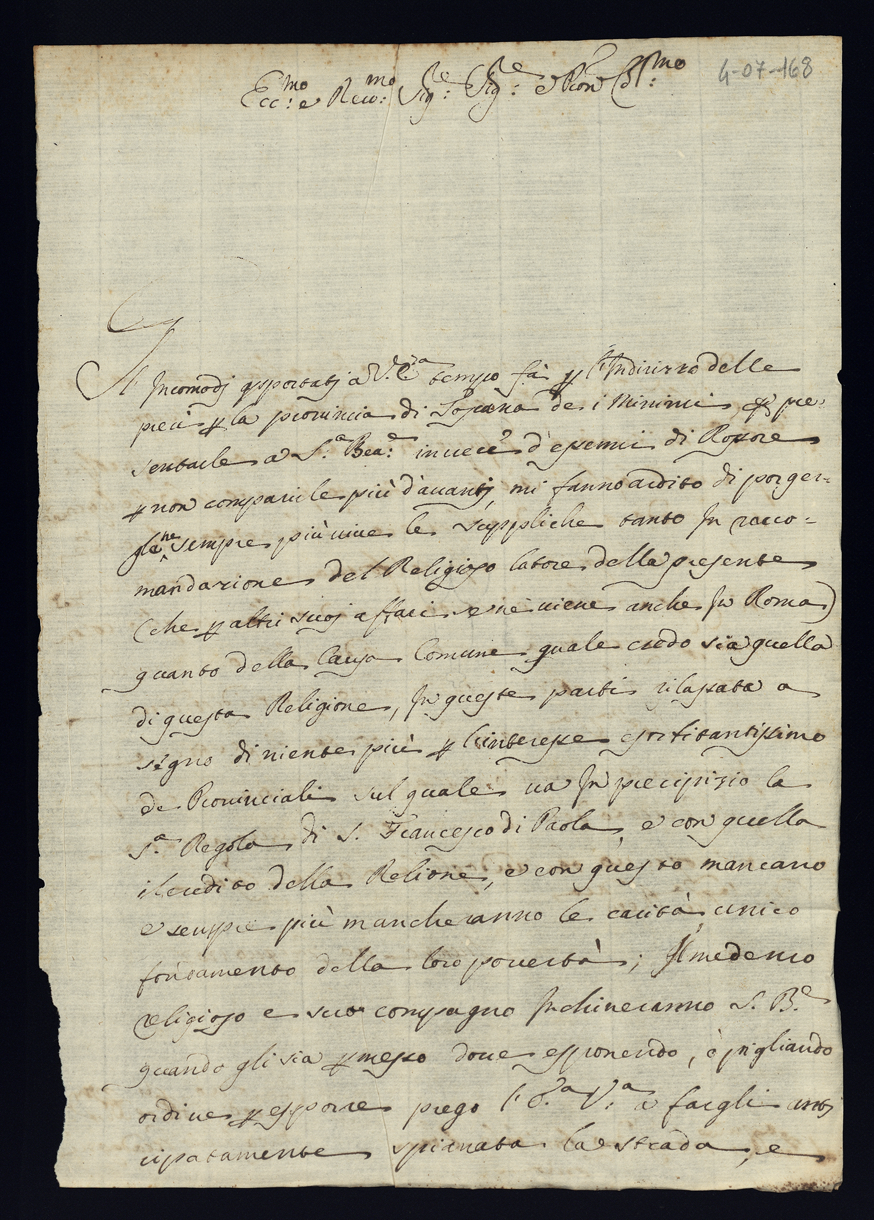 Ecc:mo e Reu:mo Sig:re Sig:re e Pron Col:mo
4-07-168
Gl' Incomodj apportatj a V. E.za tempo fà p l'Indirizzo delle
preci p la prouincia di Toscana de i Minimi, p pre=
sentarle a S.a Bea.e in uece d'esenni di Rossore
p non comparirle più d'auantj, mi fanno ardito di porger=
gliene sempre più uiue le suppliche tanto In racco=
mandazione del Religioso latore della presente
(che p altri suoj affari se nè uiene anche In Roma)
quanto della Causa Comune quale credo sia quella
di questa Religione, In queste parti rilassata a
segno di niente più p l'interesse esorbitantissimo
de Prouinciali sul quale ua In precipizio la
S.a Regola di S. Francesco di Paola, e con quella
il credito della Relione, e con questo mancano
e sempre più mancheranno le carità unico
fondamento della loro pouertà; Il medemo
religioso e suo compagno Inchineranno S. B.e
quando gli sia pmesso doue esponendo, ò pigliando
ordine p esporre prego l'E.a V.a à fargli anti
cipatamente spianata la strada, e